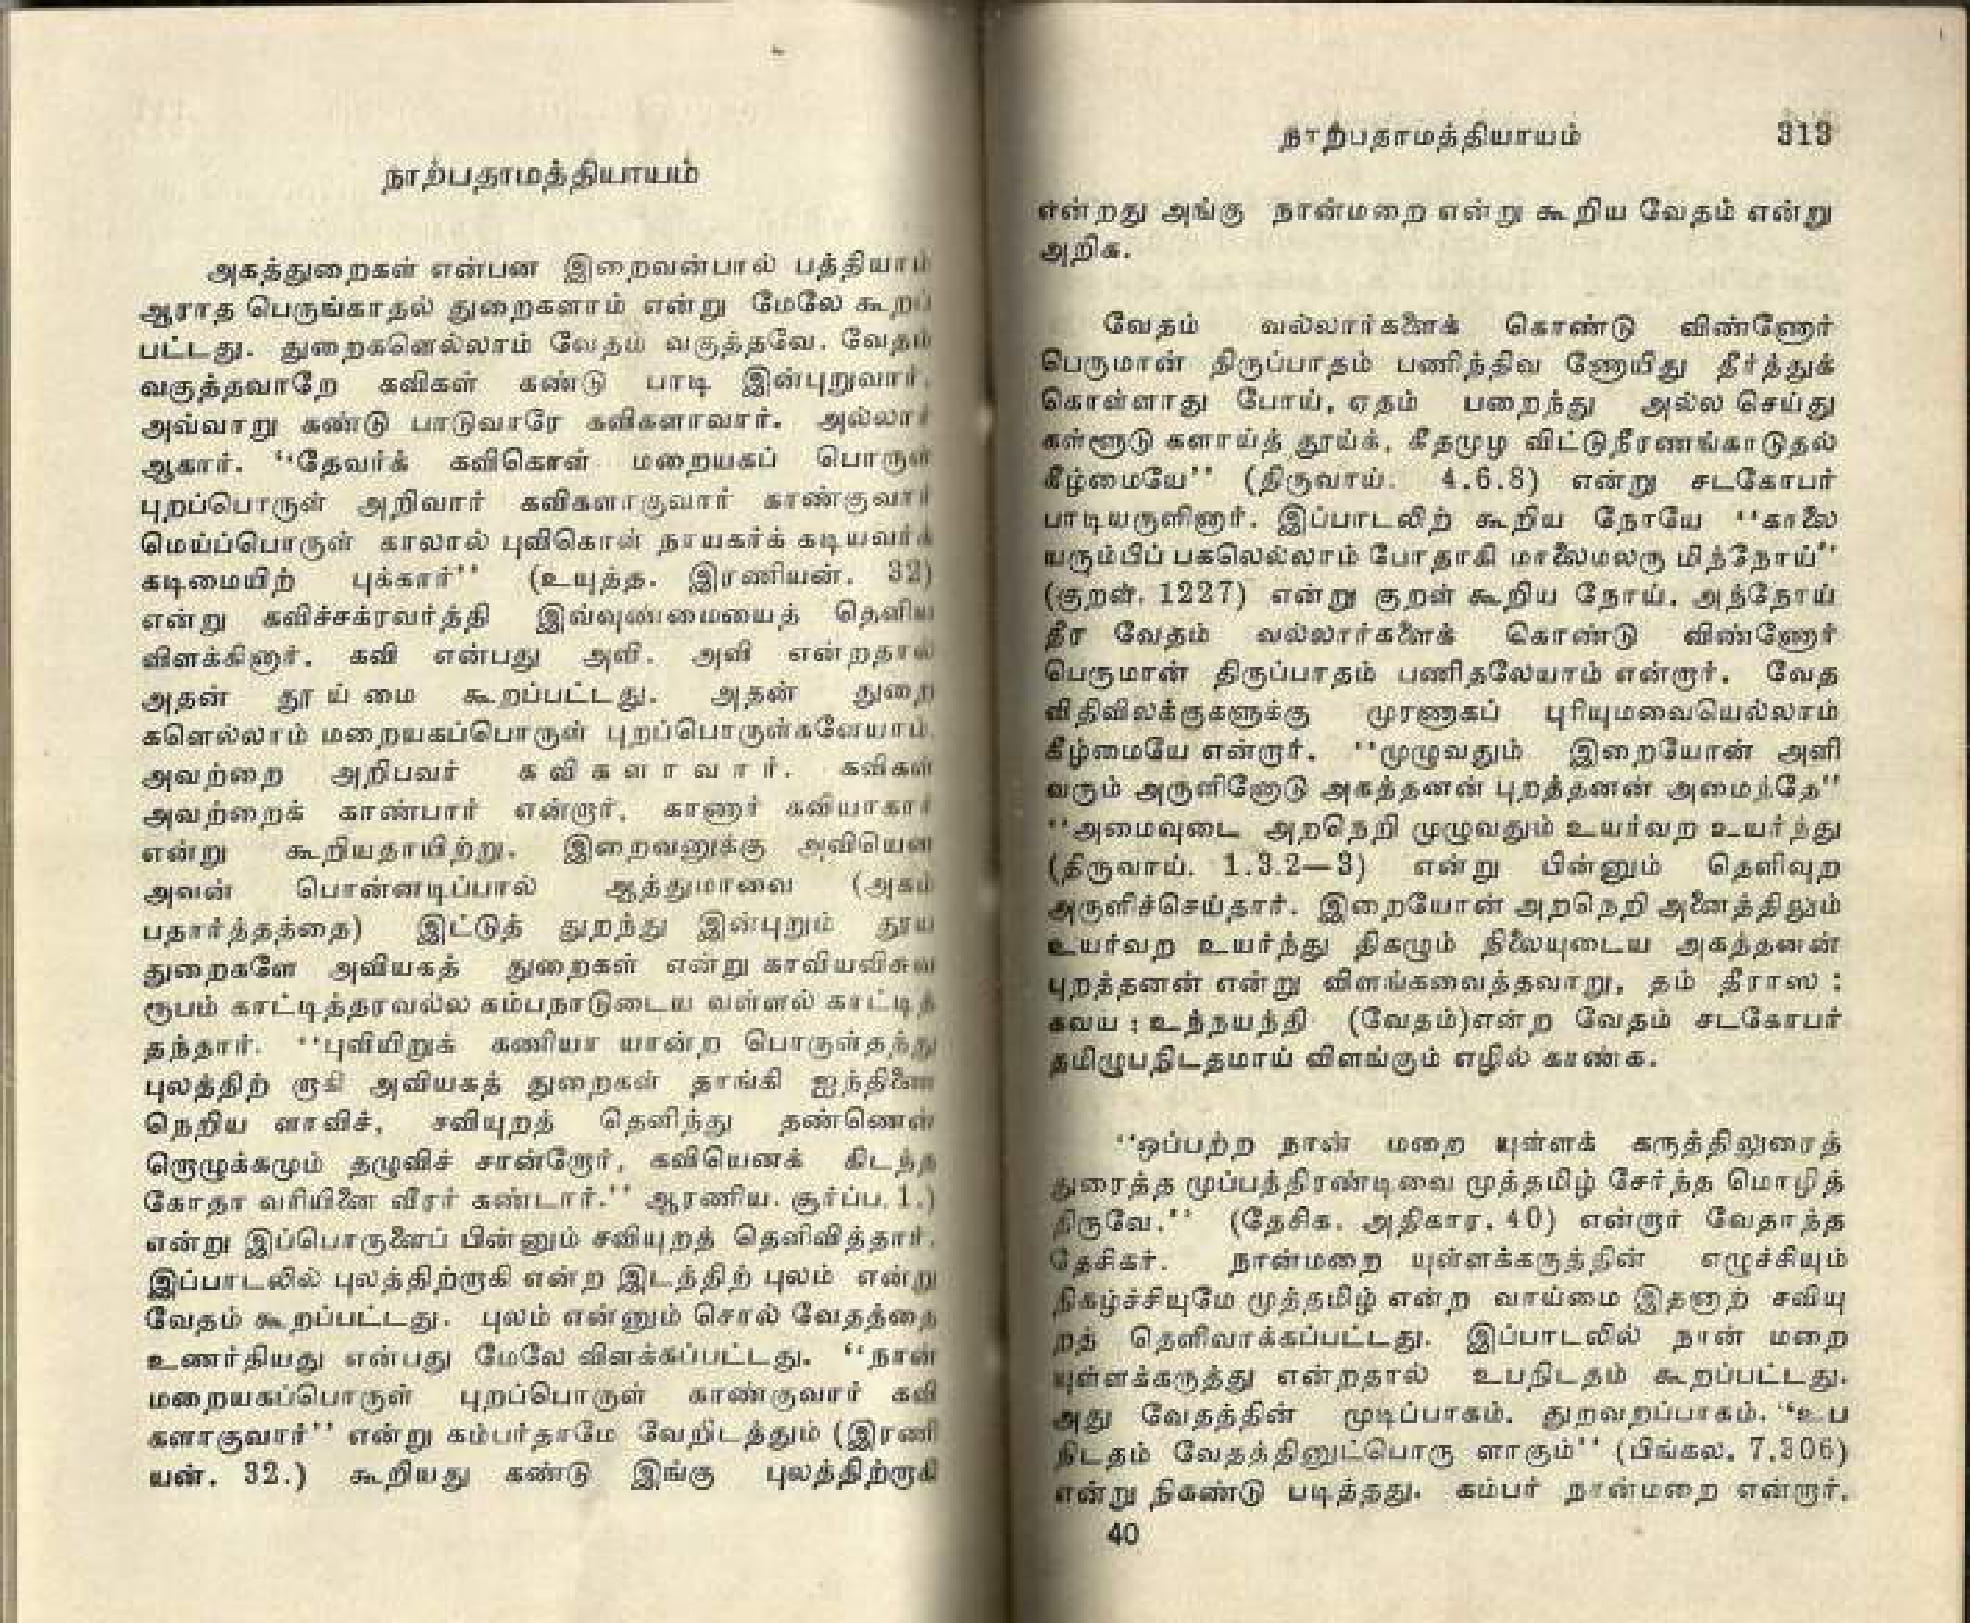 நாற்பதாமத்தியாயம்
அகத்துறைகள் என்பன இறைவன்பால் பத்தியாம்
ஆராத பெருங்காதல் துறைகளாம் என்று மேலே கூறப்
பட்டது. துறைகளெல்லாம் வேதம் வகுத்தவே. வேதம்
வகுத்தவாறே கவிகள் கண்டு பாடி இன்புறுவார்.
அவ்வாறு கண்டு பாடுவாரே கவிகளாவார். அல்லார்
ஆகார். “தேவர்க் கவிகொள் மறையகப் பொருள்
புறப்பொருள் அறிவார் கவிகளாகுவார் காண்குவார்
மெய்ப்பொருள் காலால் புவிகொள் நாயகர்க் கடியவர்க்
கடிமையிற் புக்கார்” (உயுத்த. இரணியன். 32)
என்று கவிச்சக்ரவர்த்தி இவ்வுண்மையைத் தெளிய
விளக்கினார். கவி என்பது அவி. அவி என்றதால்
அதன் தூய்மை கூறப்பட்டது. அதன் துறை
களெல்லாம் மறையகப்பொருள் புறப்பொருள்களேயாம்.
அவற்றை அறிபவர் கவிகளாவார். கவிகள்
அவற்றைக் காண்பார் என்றார், காணார் கவியாகார்
என்று கூறியதாயிற்று. இறைவனுக்கு அவியென
அவன் பொன்னடிப்பால் ஆத்துமாவை (அகம்
பதார்த்தத்தை) இட்டுத் துறந்து இன்புறும் தூய
துறைகளே அவியகத் துறைகள் என்று காவியவிசுவ
ரூபம் காட்டித்தரவல்ல கம்பநாடுடைய வள்ளல் காட்டித்
தந்தார். “புவியிறுக் கணியா யான்ற பொருள்தந்து
புலத்திற் றாகி அவியகத் துறைகள் தாங்கி ஐந்திணை
நெறிய ளாவிச், சவியுறத் தெளிந்து தண்ணென்
றொழுக்கமும் தழுவிச் சான்றோர், கவியெனக் கிடந்த
கோதா வரியினை வீரர் கண்டார்.” ஆரணிய. சூர்ப்ப. 1.)
என்று இப்பொருளைப் பின்னும் சவியுறத் தெளிவித்தார்.
இப்பாடலில் புலத்திற்றாகி என்ற இடத்திற் புலம் என்று
வேதம் கூறப்பட்டது. புலம் என்னும் சொல் வேதத்தை
உணர்தியது என்பது மேலே விளக்கப்பட்டது. “நான்
மறையகப்பொருள் புறப்பொருள் காண்குவார் கவி
களாகுவார்” என்று கம்பர்தாமே வேறிடத்தும் (இரணி
யன். 32.) கூறியது கண்டு இங்கு புலத்திற்றாகி
நாற்பதாமத்தியாயம் 313
என்றது அங்கு நான்மறை என்று கூறிய வேதம் என்று
அறிக.
வேதம் வல்லார்களைக் கொண்டு விண்ணோர்
பெருமான் திருப்பாதம் பணிந்திவ ணோயிது தீர்த்துக்
கொள்ளாது போய், ஏதம் பறைந்து அல்ல செய்து
கள்ளூடு களாய்த் தூய்க், கீதமுழ விட்டுநீரணங்காடுதல்
கீழ்மையே” (திருவாய். 4.6.8) என்று சடகோபர்
பாடியருளினார். இப்பாடலிற் கூறிய நோயே “காலை
யரும்பிப் பகலெல்லாம் போதாகி மாலைமலரு மித்நோய்”
(குறள். 1227) என்று குறள் கூறிய நோய். அந்நோய்
தீர வேதம் வல்லார்களைக் கொண்டு விண்ணோர்
பெருமான் திருப்பாதம் பணிதலேயாம் என்றார். வேத
விதிவிலக்குகளுக்கு முரணாகப் புரியுமவையெல்லாம்
கீழ்மையே என்றார். “முழுவதும் இறையோன் அளி
வரும் அருளினோடு அகத்தனன் புறத்தனன் அமைந்தே”
“அமைவுடை அறநெறி முழுவதும் உயர்வற உயர்ந்து
(திருவாய். 1.3.2—3) என்று பின்னும் தெளிவுற
அருளிச்செய்தார். இறையோன் அறநெறி அனைத்திலும்
உயர்வற உயர்ந்து திகழும் நிலையுடைய அகத்தனன்
புறத்தனன் என்று விளங்கவைத்தவாறு, தம் தீராஸ :
கவய : உந்நயந்தி (வேதம்)என்ற வேதம் சடகோபர்
தமிழுபநிடதமாய் விளங்கும் எழில் காண்க.
“ஒப்பற்ற நான் மறை யுள்ளக் கருத்திலுரைத்
துரைத்த முப்பத்திரண்டிவை முத்தமிழ் சேர்ந்த மொழித்
திருவே.” (தேசிக. அதிகார. 40) என்றார் வேதாந்த
தேசிகர். நான்மறை யுள்ளக்கருத்தின் எழுச்சியும்
நிகழ்ச்சியுமே முத்தமிழ் என்ற வாய்மை இதனாற் சவியு
றத் தெளிவாக்கப்பட்டது. இப்பாடலில் நான் மறை
யுள்ளக்கருத்து என்றதால் உபநிடதம் கூறப்பட்டது.
அது வேதத்தின் முடிப்பாகம். துறவறப்பாகம். “உப
நிடதம் வேதத்தினுட்பொரு ளாகும்” (பிங்கல. 7.306)
என்று நிகண்டு படித்தது. கம்பர் நான்மறை என்றார்.
40